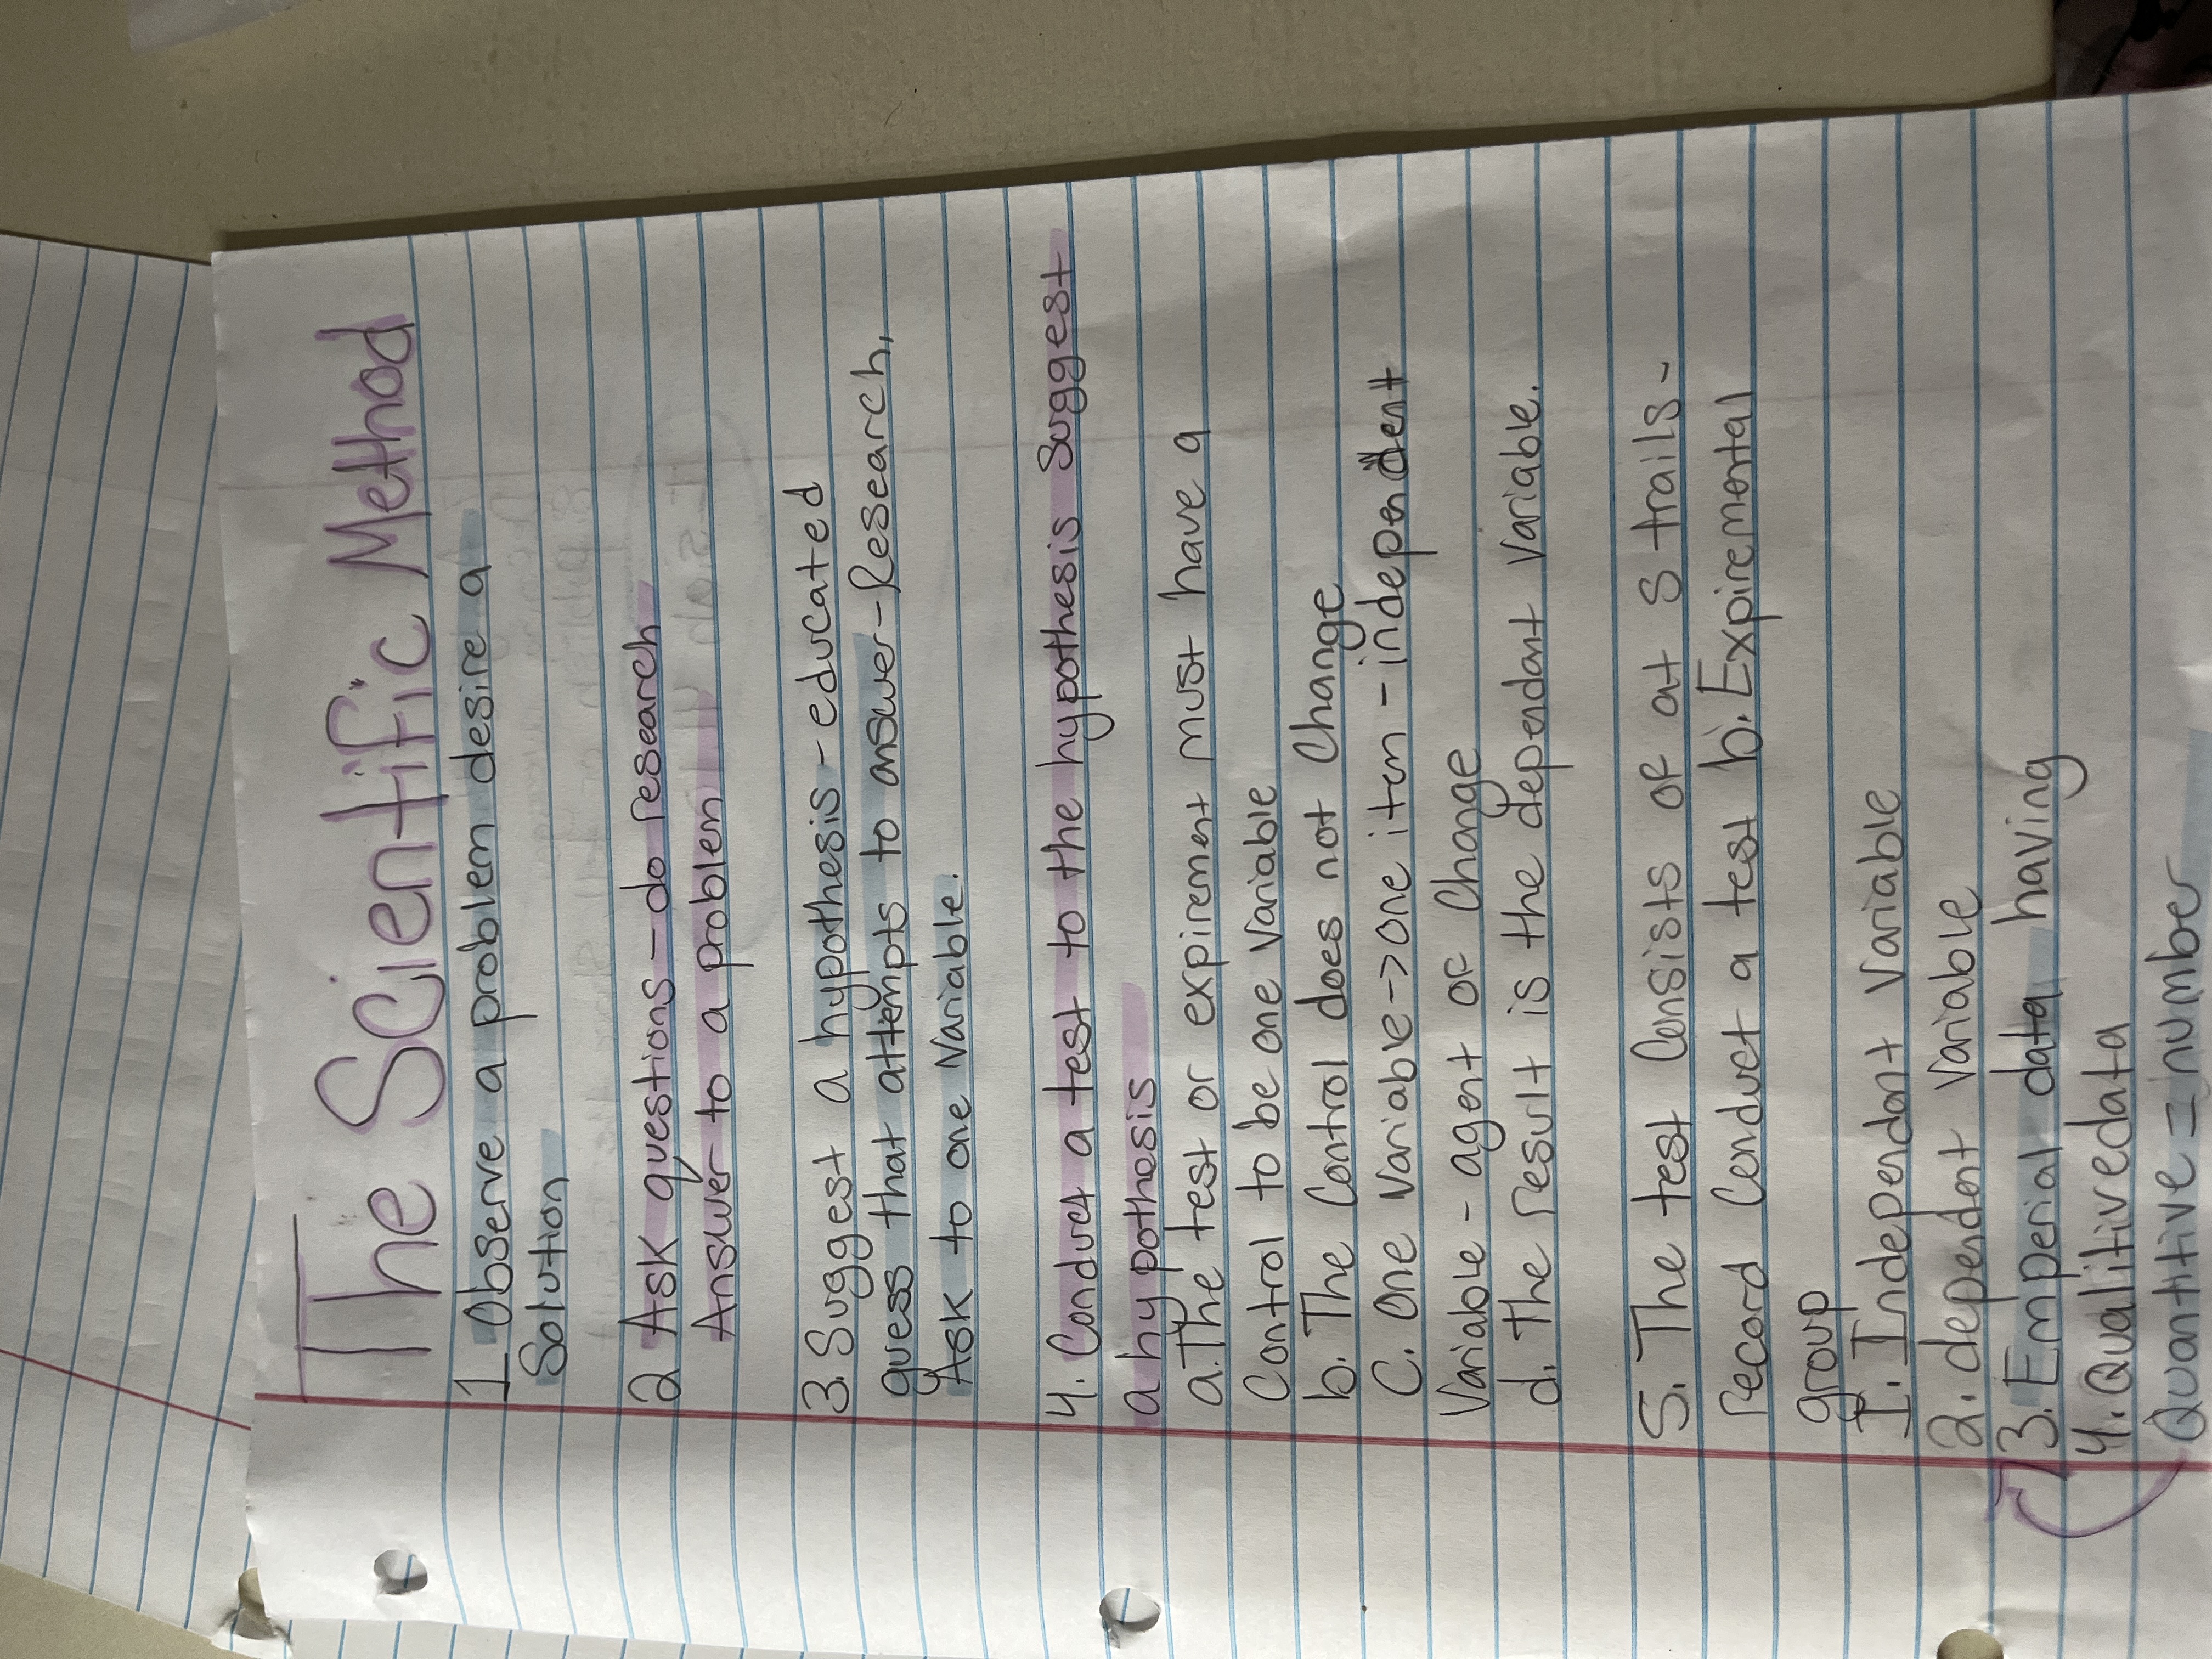 The Scientific Method
1 Observe a problem desire a
Solution
2 Ask questions - do research
Answer to a problem
3. Suggest a hypothesis - educated
guess that attempts to answer - Research,
Ask to one Variable.
4. Conduct a test to the hypothesis Suggest
a hypothesis
a. The test or expirement must have a
Control to be one Variable
b. The Control does not Change
C. One Variable -> one item - independent
Variable - agent of Change
d. The result is the dependant Variable.
5. The test Consists of at 5 trails -
record Conduct a test b. Expiremental
group
I. Independant Variable
2. dependent Variable
3. Emperial data having
4. Qualitivedata
Quantitive = number